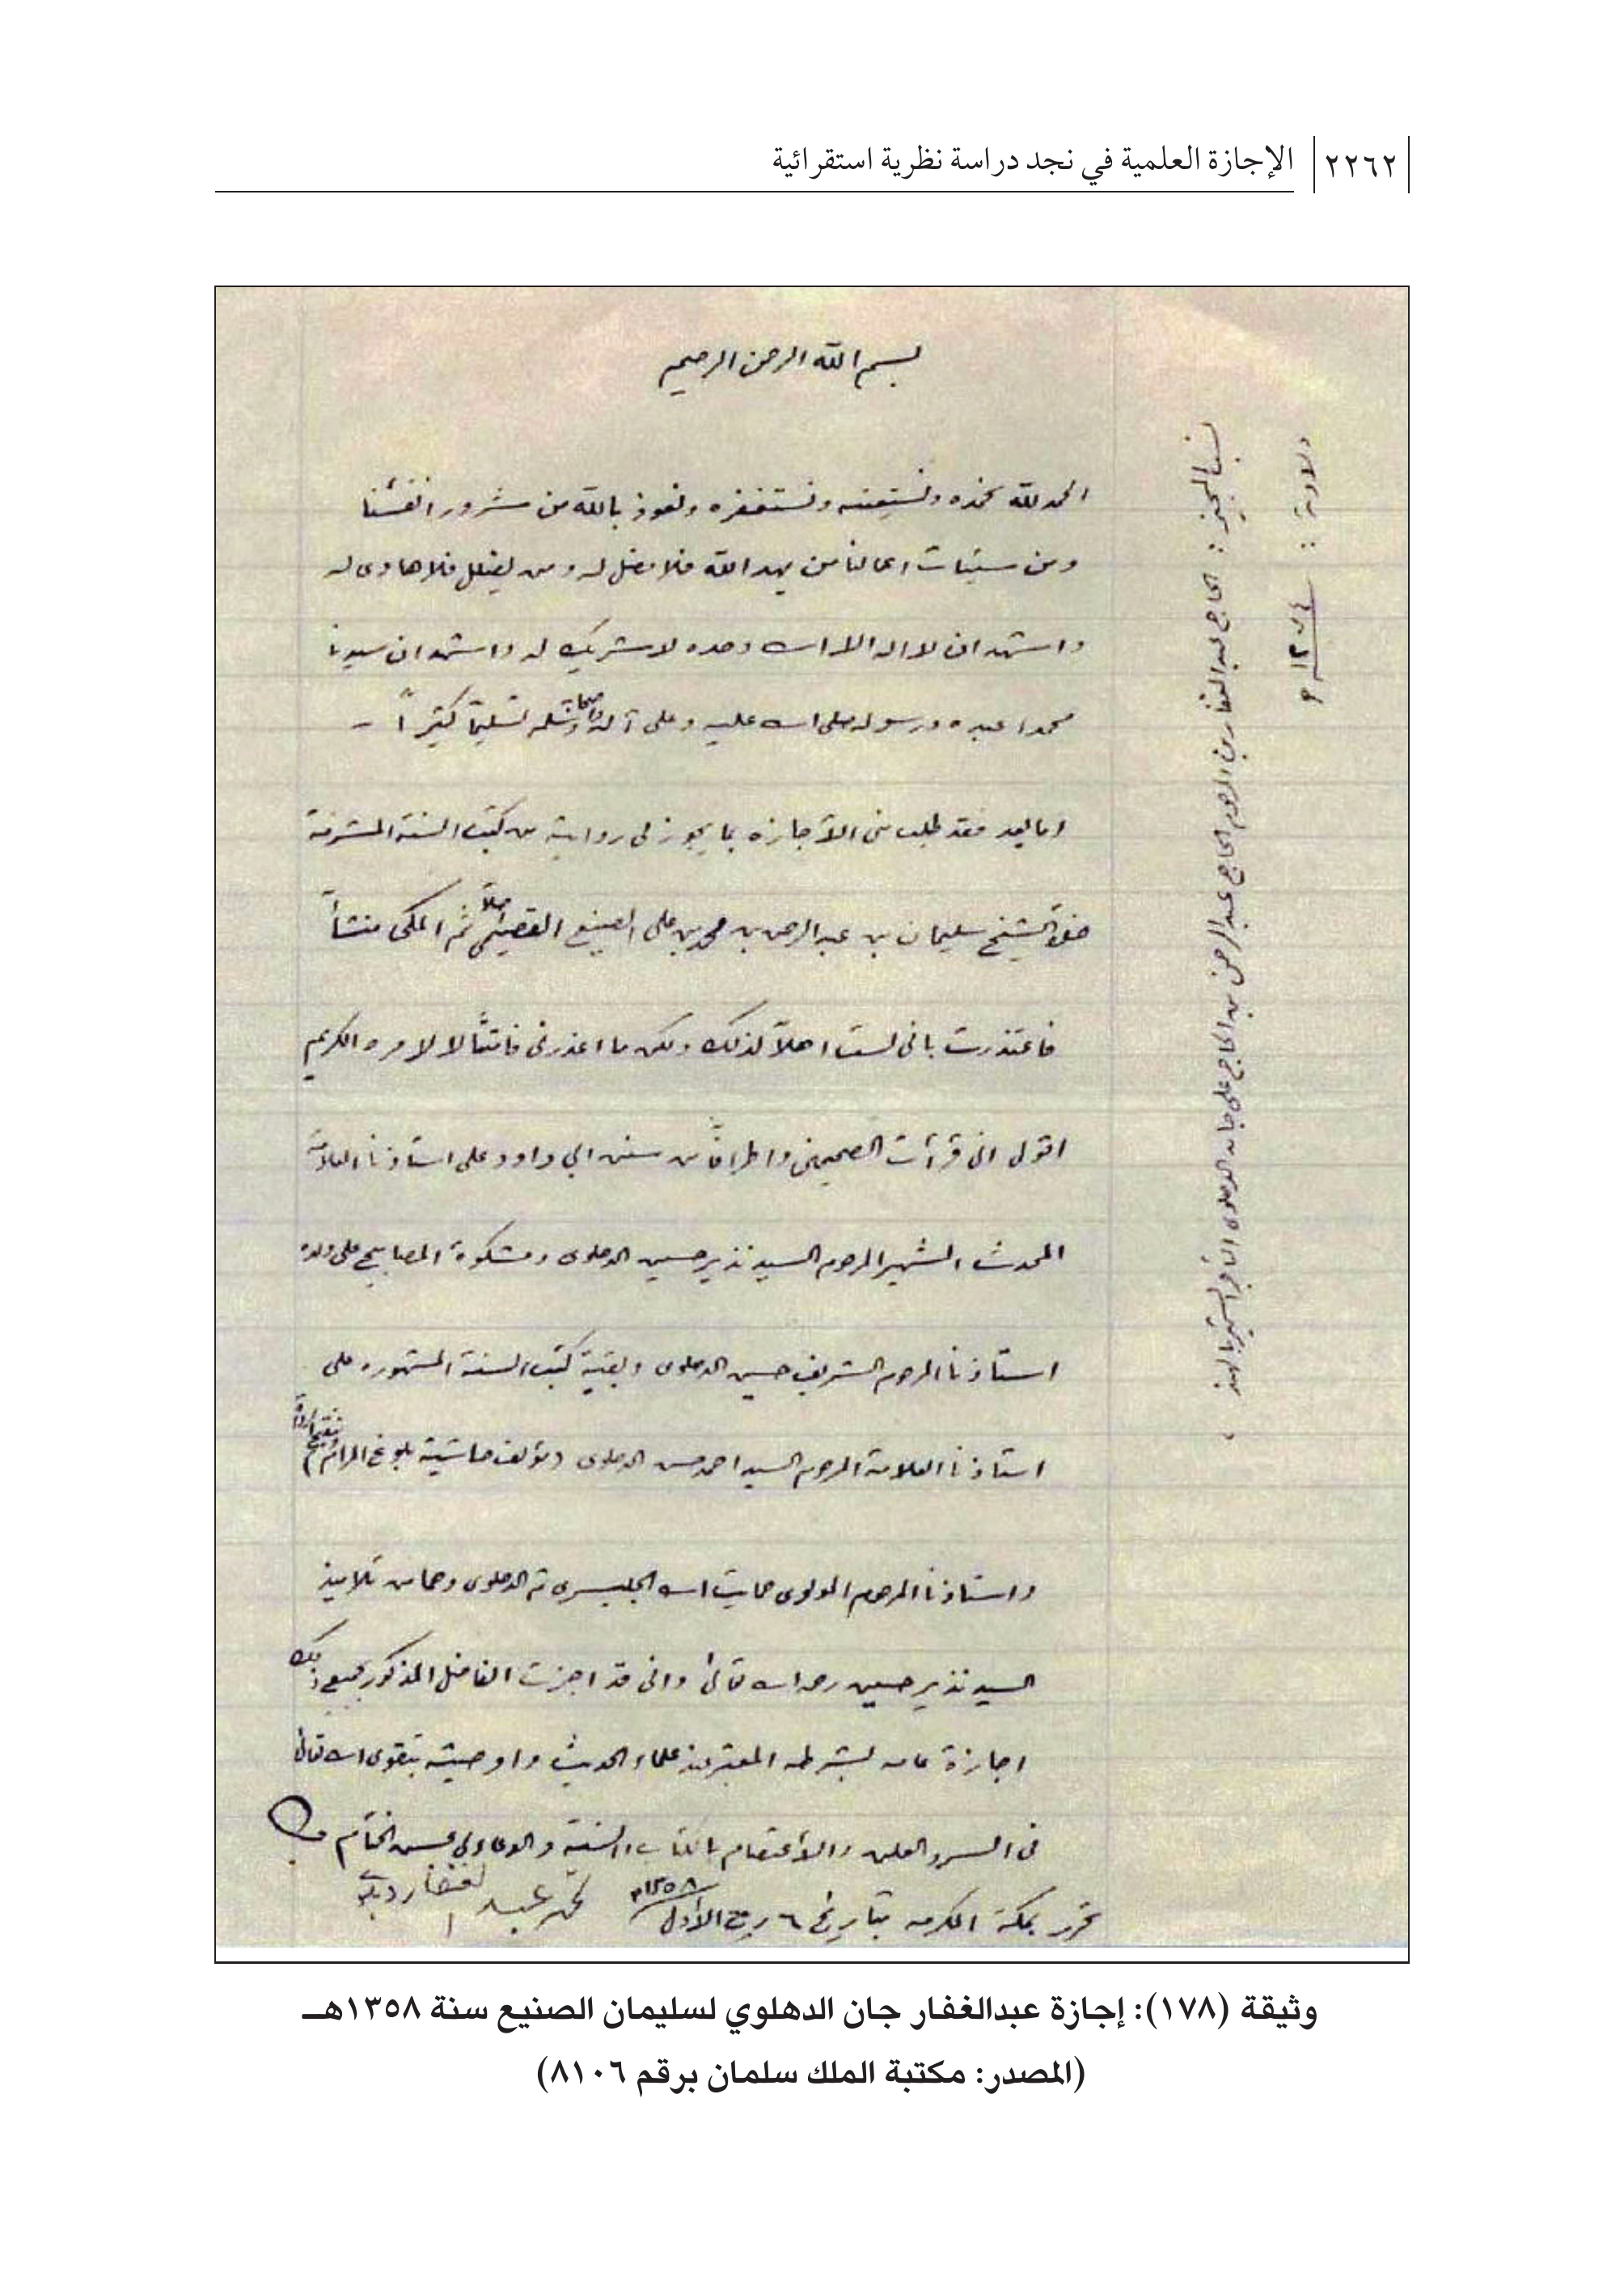 ٢٢٦٢
الإجازة العلمية في نجد دراسة نظرية استقرائية
بسم الله الرحمن الرحيم
الحمد لله نحمده ونستعينه ونستغفره ونعوذ بالله من شرور انفسنا
ومن سيئات اعمالنا من يهد الله فلا مضل له ومن يضلل فلا هادى له
واشهد ان لا اله الا الله وحده لا شريك له واشهد ان سيدنا
محمدا عبده ورسوله صلى الله عليه وعلى آله وصحابته وسلم تسليماً كثيراً -
اما بعد فقد طلب منى الأجازه بما يجوز لى روايته من كتب السنة المشرفة
الشيخ سليمان بن عبد الرحمن بن محمد بن على الصنيع القصيمى اصلاً ثم المكى منشأً
فاعتذرت بانى لست اهلاً لذلك ولكن ما اعذرنى فامتثالا لامره الكريم
اقول انى قرأت الصحيحين واطرافاً من سنن ابي داود على استاذنا العلامة
المحدث الشهير المرحوم السيد نذير حسين الدهلوى ومشكوة المصابيح على ولده
استاذنا المرحوم الشريف حسين الدهلوى وبقية كتب السنة المشهوره على
استاذنا العلامة المرحوم السيد احمد حسن الدهلوى (مؤلف حاشية بلوغ المرام وتنقيح الرواة)
واستاذنا المرحوم المولوى حمايت الله الجليسرى ثم الدهلوى وهما من تلاميذ
السيد نذير حسين رحمه الله تعالى وانى قد اجزت الفاضل المذكور بجميع ذلك
اجازة عامه بشرطه المعتبر عند علماء الحديث واوصيته بتقوى الله تعالى
فى السر والعلن والأعتصام بالكتاب والسنة والدعاء لي بحسن الختام
تحرر بمكة المكرمه بتاريخ ٦ ربيع الأول ١٣٥٨ محمد عبد الغفار
نسب المجيز : الحاج عبد الغفار بن المرحوم الحاج عبد الرحمن بن الحاج على جان الدهلوى التاجر الشهير بالهند
ولادته : ١٢٧٤ هـ
وثيقة (١٧٨): إجازة عبدالغفار جان الدهلوي لسليمان الصنيع سنة ١٣٥٨هـ
(المصدر: مكتبة الملك سلمان برقم ٨١٠٦)